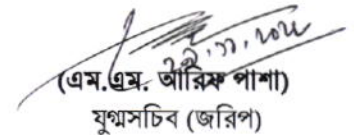 (এম.এম. আরিফ পাশা)
যুগ্মসচিব (জরিপ)